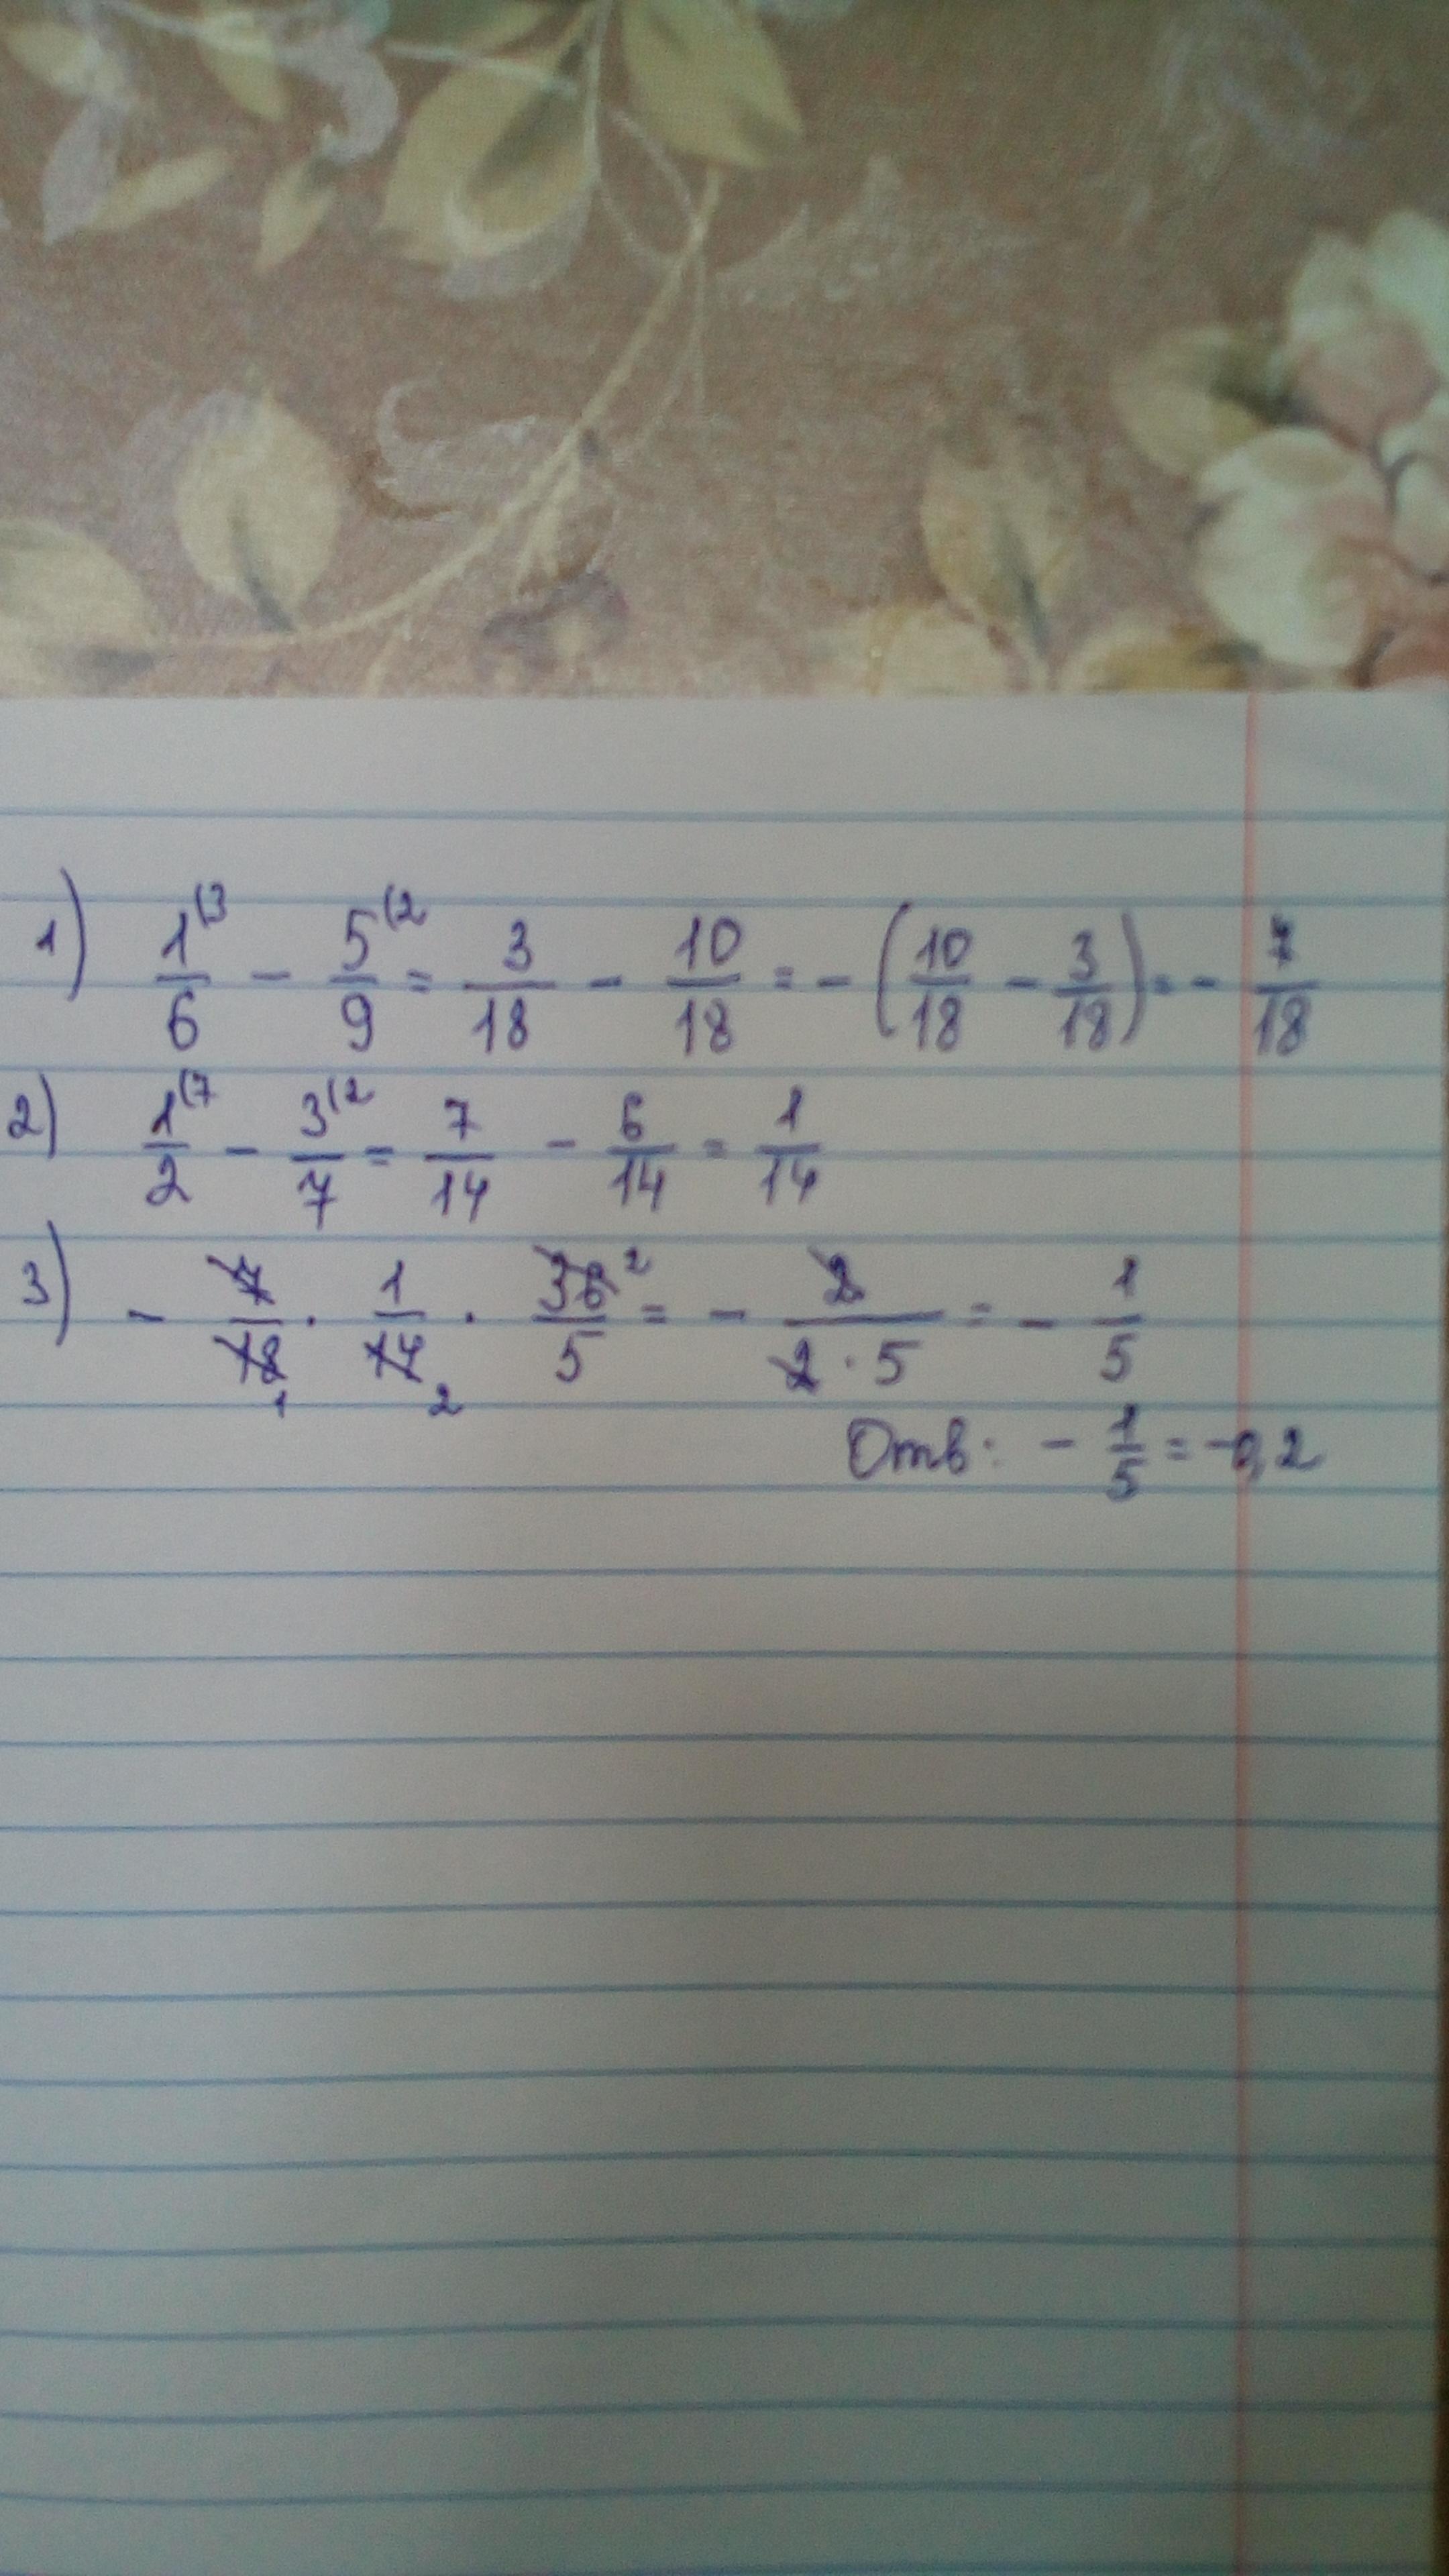 1) 1⁽³/6 - 5⁽²/9 = 3/18 - 10/18 = -(10/18 - 3/18) = - 7/18
2) 1⁽⁷/2 - 3⁽²/7 = 7/14 - 6/14 = 1/14
3) - 7/18₁ · 1/14₂ · 36²/5 = - 2/(2 · 5) = - 1/5
Отв: - 1/5 = -0,2